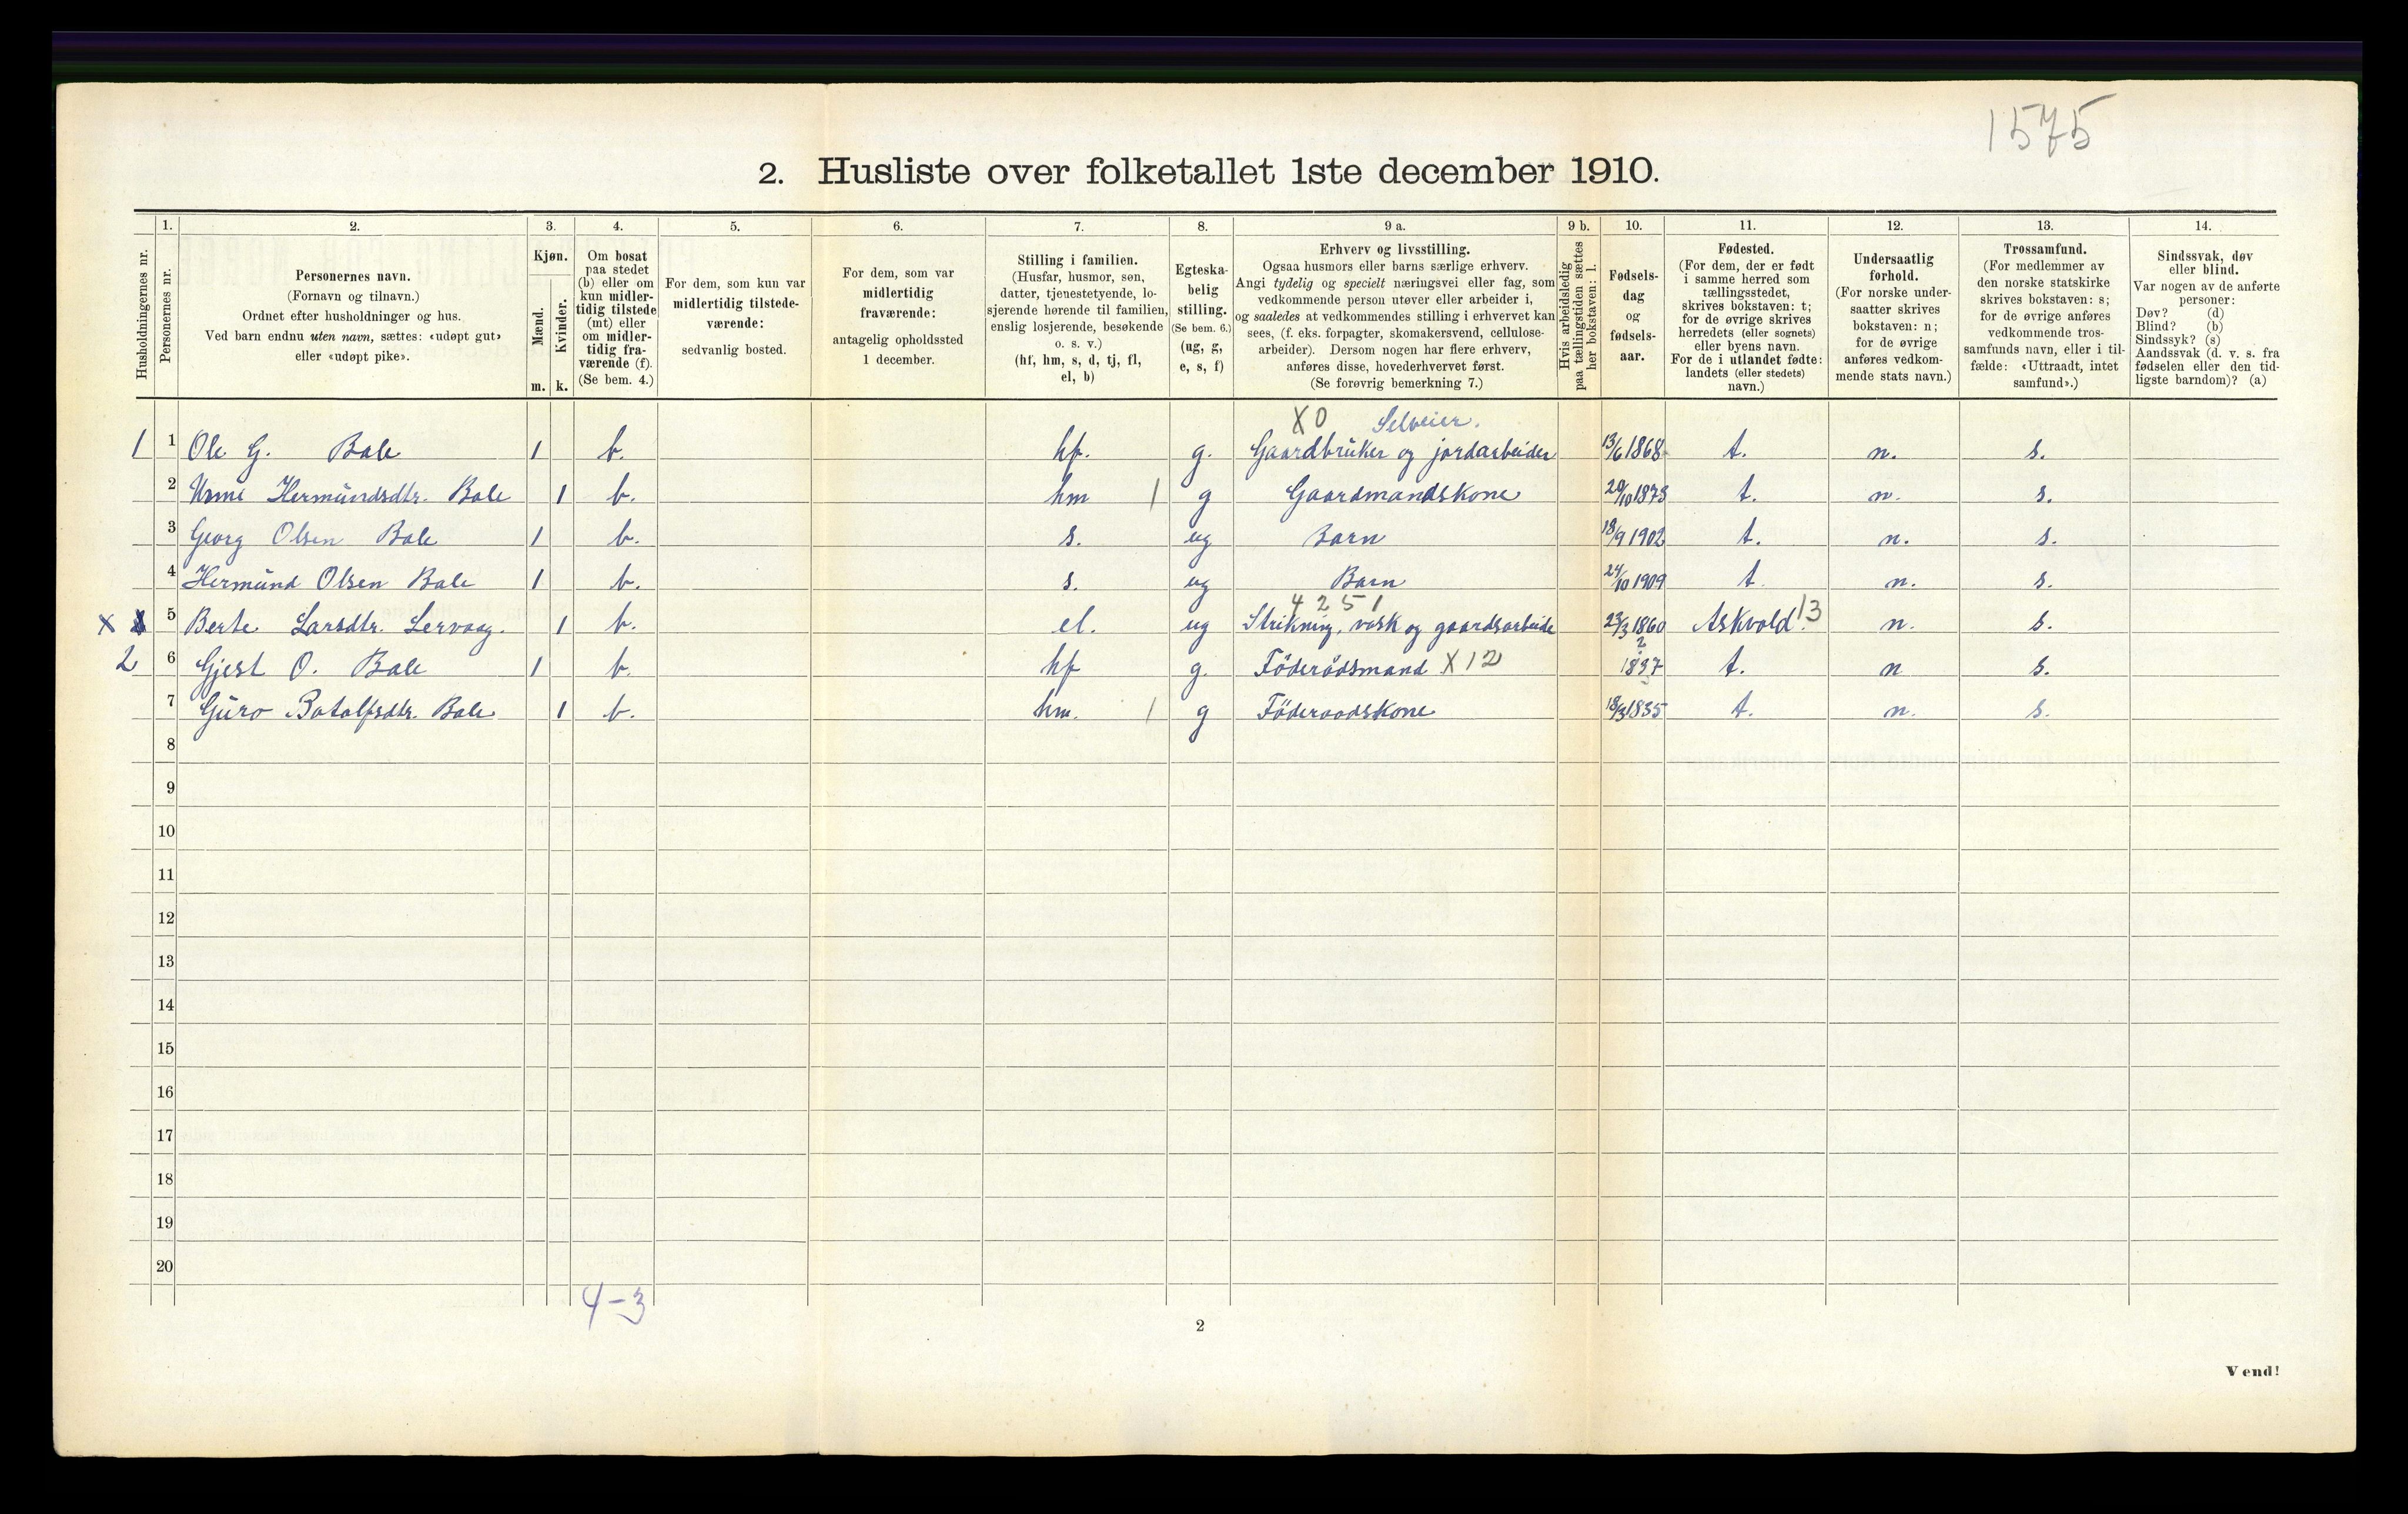 1575
2. Husliste over folketallet 1ste december 1910.
Husholdningernes nr.
1.
Personernes nr.
2.
Personernes navn.
(Fornavn og tilnavn.)
Ordnet efter husholdninger og hus.
Ved barn endnu uten navn, sættes: «udøpt gut»
eller «udøpt pike».
3.
Kjøn.
Mænd.
m.
Kvinder.
k.
4.
Om bosat
paa stedet
(b) eller om
kun midler-
tidig tilstede
(mt) eller
om midler-
tidig fra-
værende (f).
(Se bem. 4.)
5.
For dem, som kun var
midlertidig tilstede-
værende:
sedvanlig bosted.
6.
For dem, som var
midlertidig
fraværende:
antagelig opholdssted
1 december.
7.
Stilling i familien.
(Husfar, husmor, søn,
datter, tjenestetyende, lo-
sjerende hørende til familien,
enslig losjerende, besøkende
o. s. v.)
(hf, hm, s, d, tj, fl,
el, b)
8.
Egteska-
belig
stilling.
(Se bem. 6.)
(ug, g,
e, s, f)
9 a.
Erhverv og livsstilling.
Ogsaa husmors eller barns særlige erhverv.
Angi tydelig og specielt næringsvei eller fag, som
vedkommende person utøver eller arbeider i,
og saaledes at vedkommendes stilling i erhvervet kan
sees, (f. eks. forpagter, skomakersvend, cellulose-
arbeider). Dersom nogen har flere erhverv,
anføres disse, hovederhvervet først.
(Se forøvrig bemerkning 7.)
9 b.
Hvis arbeidsledig
paa tællingstiden sættes
her bokstaven: l.
10.
Fødsels-
dag
og
fødsels-
aar.
11.
Fødested.
(For dem, der er født
i samme herred som
tællingsstedet,
skrives bokstaven: t;
for de øvrige skrives
herredets (eller sognets)
eller byens navn.
For de i utlandet fødte:
landets (eller stedets)
navn.)
12.
Undersaatlig
forhold.
(For norske under-
saatter skrives
bokstaven: n;
for de øvrige
anføres vedkom-
mende stats navn.)
13.
Trossamfund.
(For medlemmer av
den norske statskirke
skrives bokstaven: s;
for de øvrige anføres
vedkommende tros-
samfunds navn, eller i til-
fælde: «Uttraadt, intet
samfund».)
14.
Sindssvak, døv
eller blind.
Var nogen av de anførte
personer:
Døv? (d)
Blind? (b)
Sindssyk? (s)
Aandssvak (d. v. s. fra
fødselen eller den tid-
ligste barndom)? (a)
X0 Selveier.
1 1 Ole G. Bale 1 b. hf. g. Gaardbruker og jordarbeider 13/6 1868 t. n. s.
2 Hermundsdtr. Bale 1 b. hm 1 g Gaardmandskone 20/10 1873 t. n. s.
3 Georg Olsen Bale 1 b. s. ug Barn 18/9 1902 t. n. s.
4 Hermund Olsen Bale 1 b. s. ug Barn 24/10 1909 t. n. s.
4251
X 5 Berte Larsdtr. Lervaag. 1 b. el. ug Strikning, vask og gaardsarbeide 23/3 1860 Askvold. 13 n. s.
2 6 Gjest O. Bale 1 b. hf g. Föderådsmand X12 1837 t. n s.
7 Guro Botolfsdtr. Bale 1 b. hm. 1 g Föderaadskone 18/3 1835 t. n. s.
8
9
10
11
12
13
14
15
16
17
18
19
20
4-3
2
Vend!